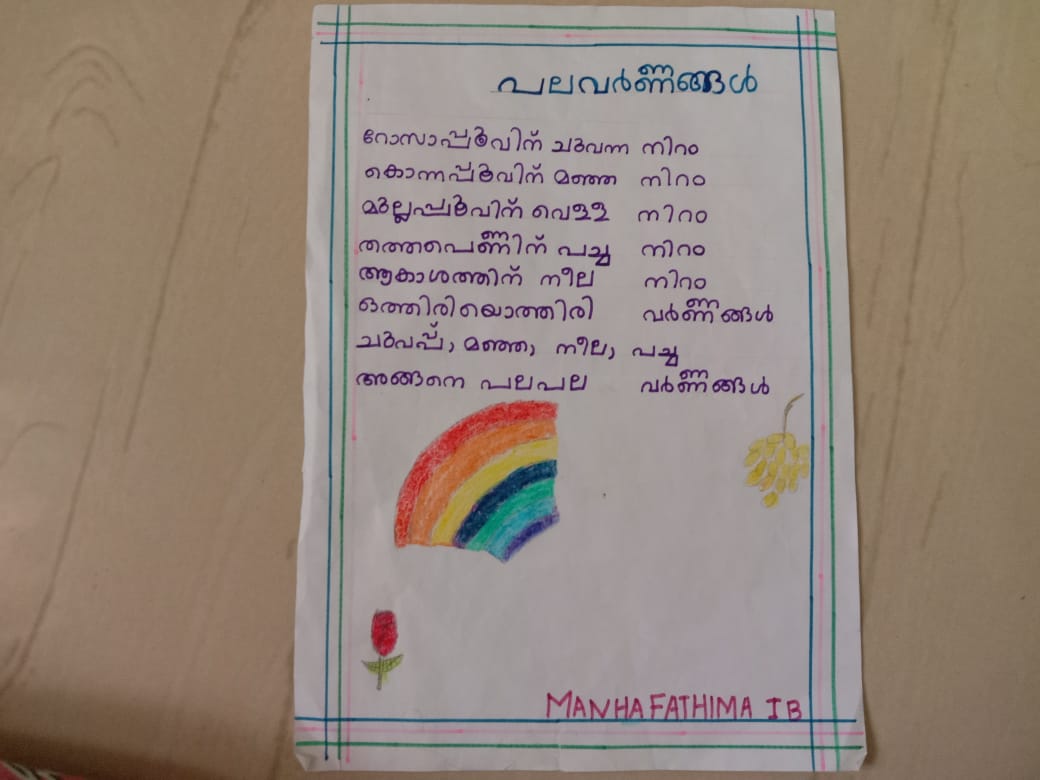 പലവർണ്ണങ്ങൾ
റോസാപ്പൂവിന് ചുവന്ന നിറം
കൊന്നപ്പൂവിന് മഞ്ഞ നിറം
മുല്ലപ്പൂവിന് വെള്ള നിറം
തത്തപെണ്ണിന് പച്ച നിറം
ആകാശത്തിന് നീല നിറം
ഒത്തിരിയൊത്തിരി വർണ്ണങ്ങൾ
ചുവപ്പ്, മഞ്ഞ, നീല, പച്ച
അങ്ങനെ പലപല വർണ്ണങ്ങൾ
MANHA FATHIMA IB